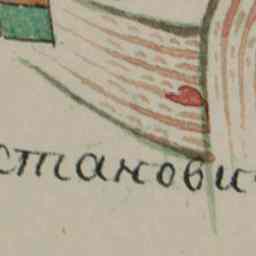 становис